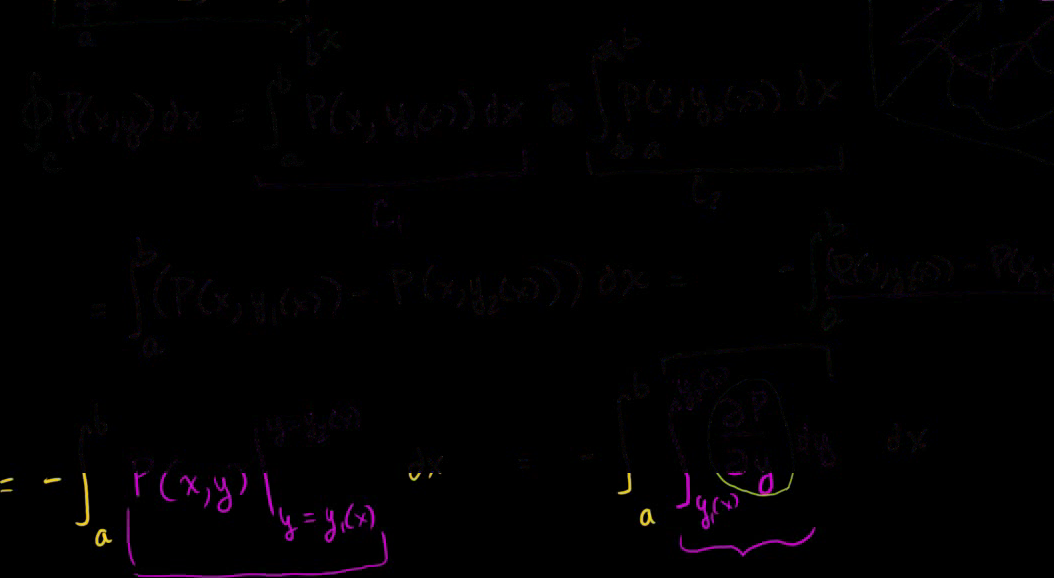 a b x
∮_C P(x,y) dx = ∫_a^b P(x, y₁(x)) dx ∫_a^b P(x, y₂(x)) dx
C₁ C₂
= ∫_a^b (P(x, y₁(x)) - P(x, y₂(x))) dx = - ∫_a^b (P(x, y₂(x)) - P(x,
= - ∫_a^b P(x,y) |_{y = y₁(x)}^{y = y₂(x)} dx = - ∫_a^b ∫_{y₁(x)} ∂P/∂y dy dx